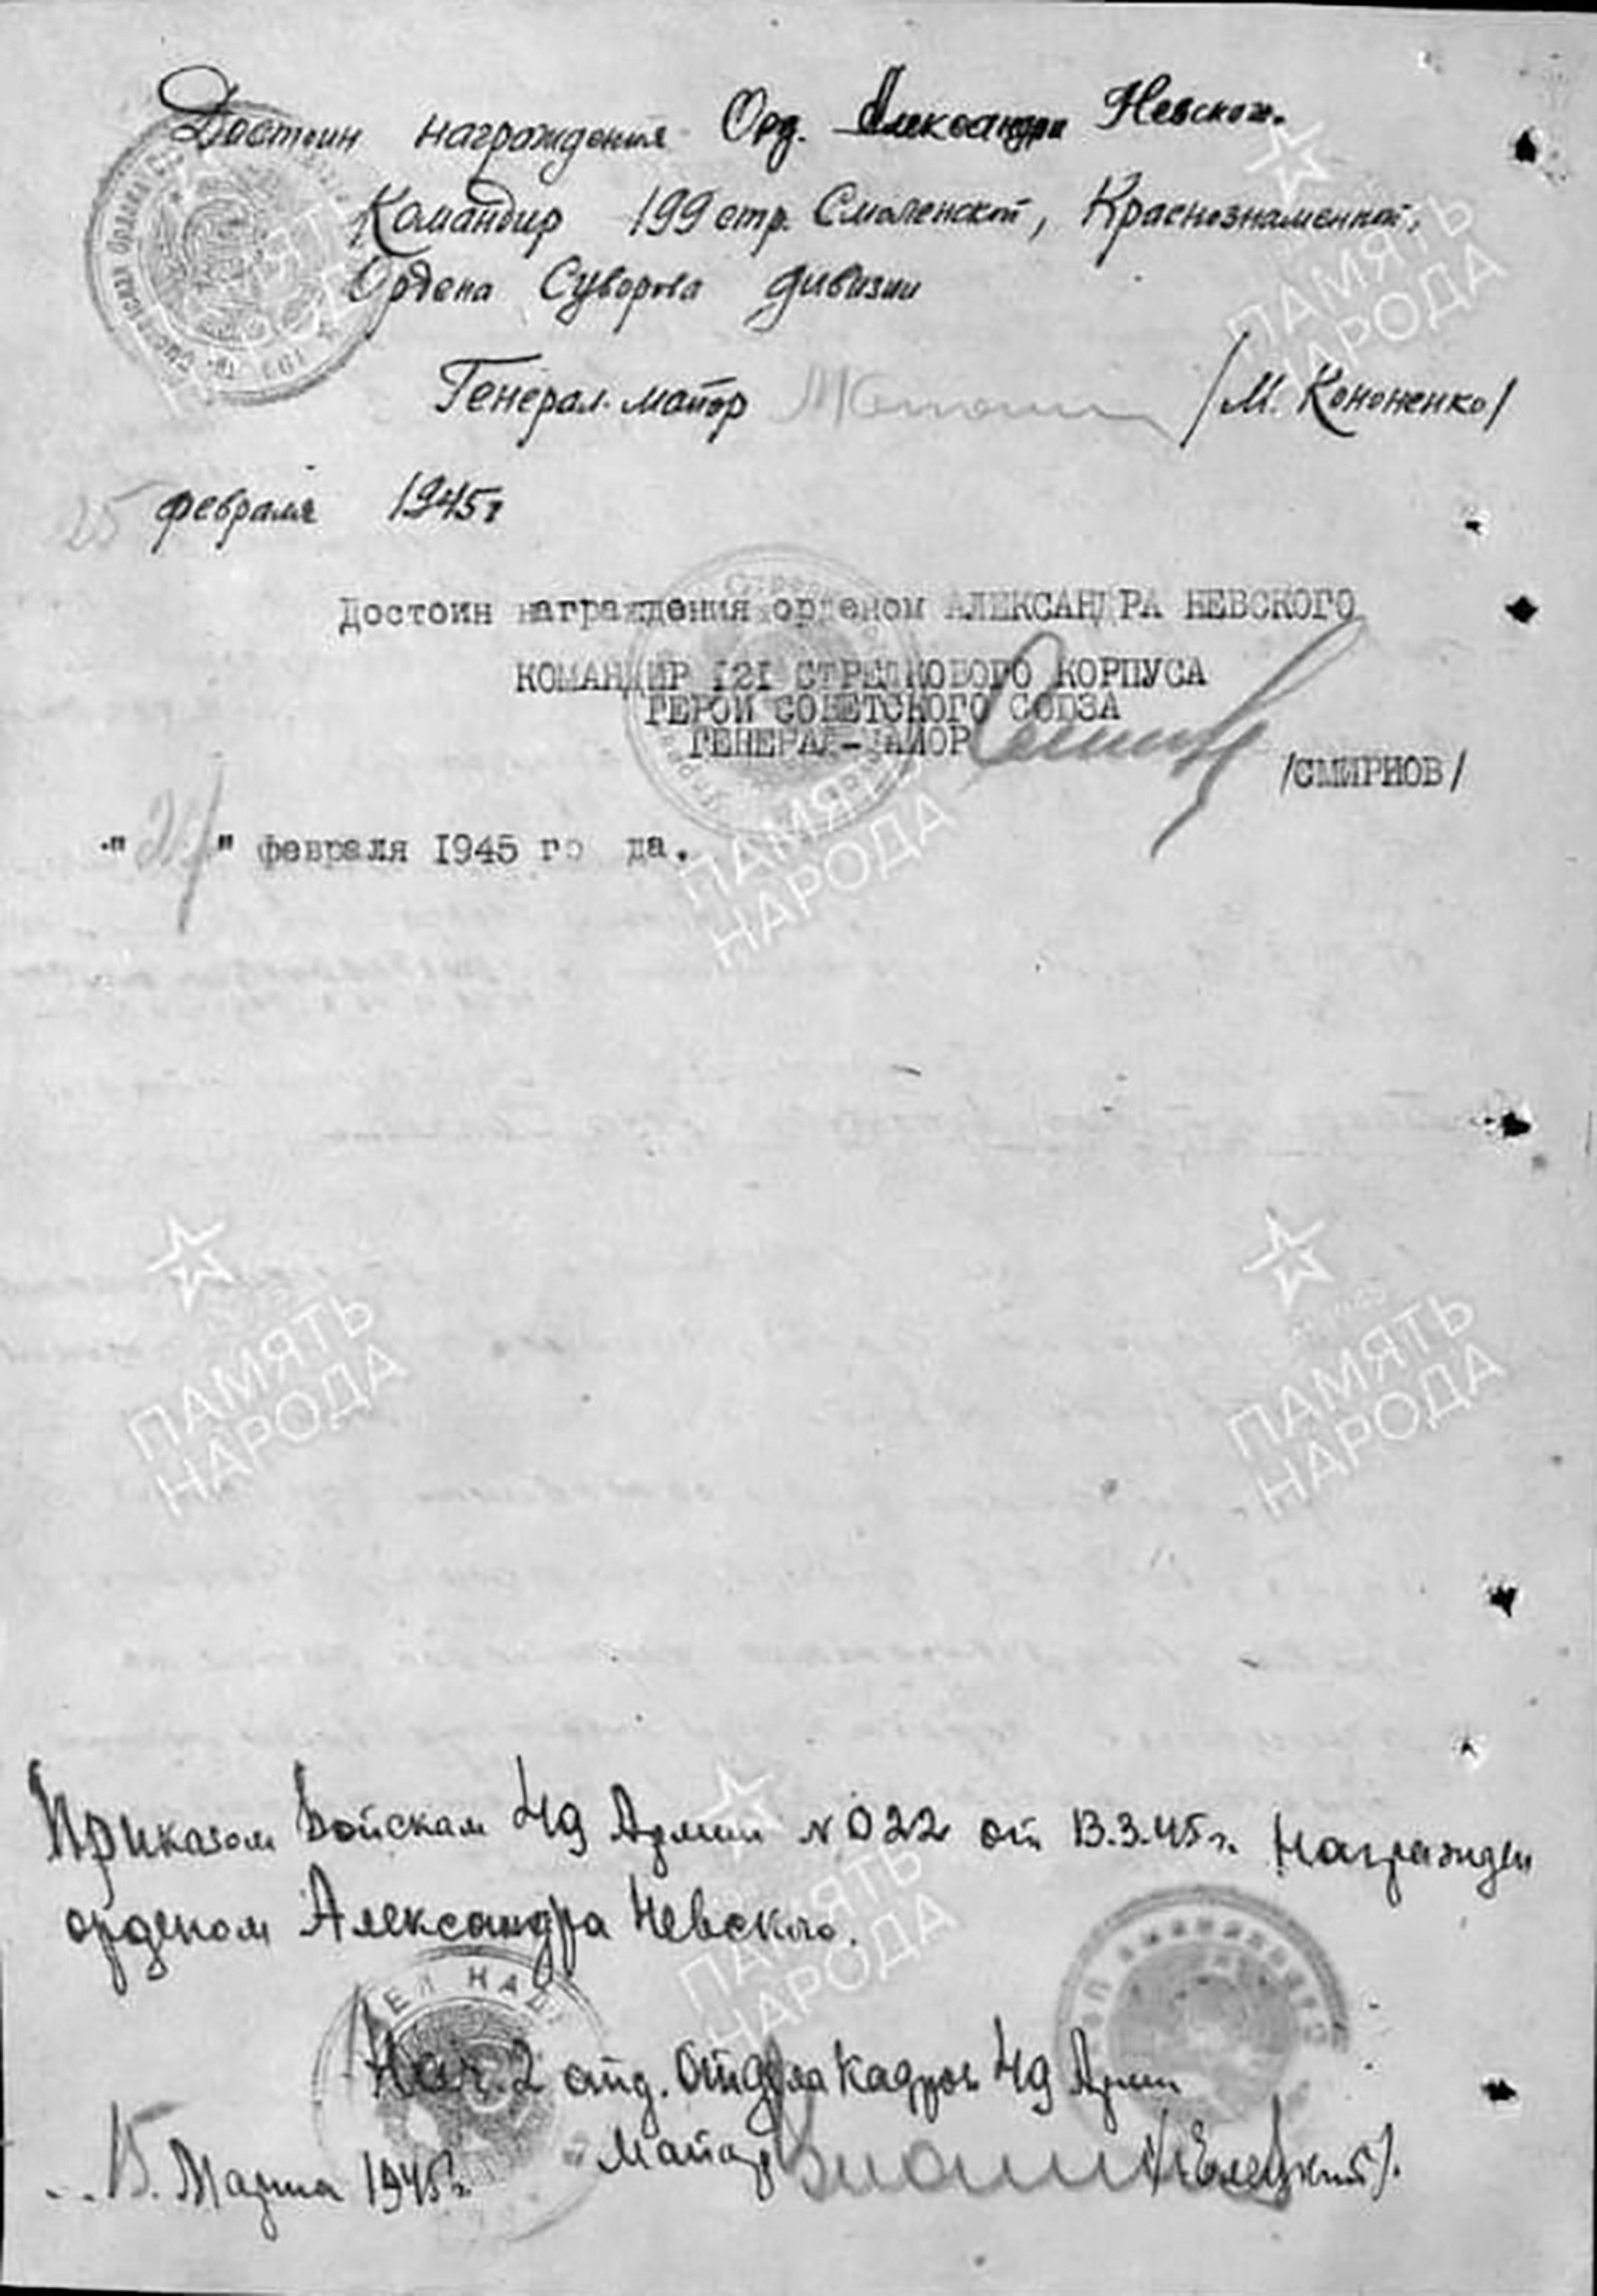 Достоин награждения Орд. Александра Невского.
Командир 199 стр. Смоленской, Краснознаменной,
Ордена Суворова дивизии
Генерал-майор /М. Кононенко/
25 февраля 1945г
Достоин награждения орденом АЛЕКСАНДРА НЕВСКОГО
КОМАНДИР 121 СТРЕЛКОВОГО КОРПУСА
ГЕРОЙ СОВЕТСКОГО СОЮЗА
ГЕНЕРАЛ-МАЙОР
/СМИРНОВ/
" " февраля 1945 го да.
Приказом Войскам 49 Армии № 022 от 13.3.45г. Награжден
орденом Александра Невского.
Нач. 2 отд. Отдела Кадров 49 Армии
Майор /Елецкий/.
15. Марта 1945г.
ПАМЯТЬ
НАРОДА
ПАМЯТЬ
НАРОДА
ПАМЯТЬ
НАРОДА
ПАМЯТЬ
НАРОДА
ПАМЯТЬ
НАРОДА